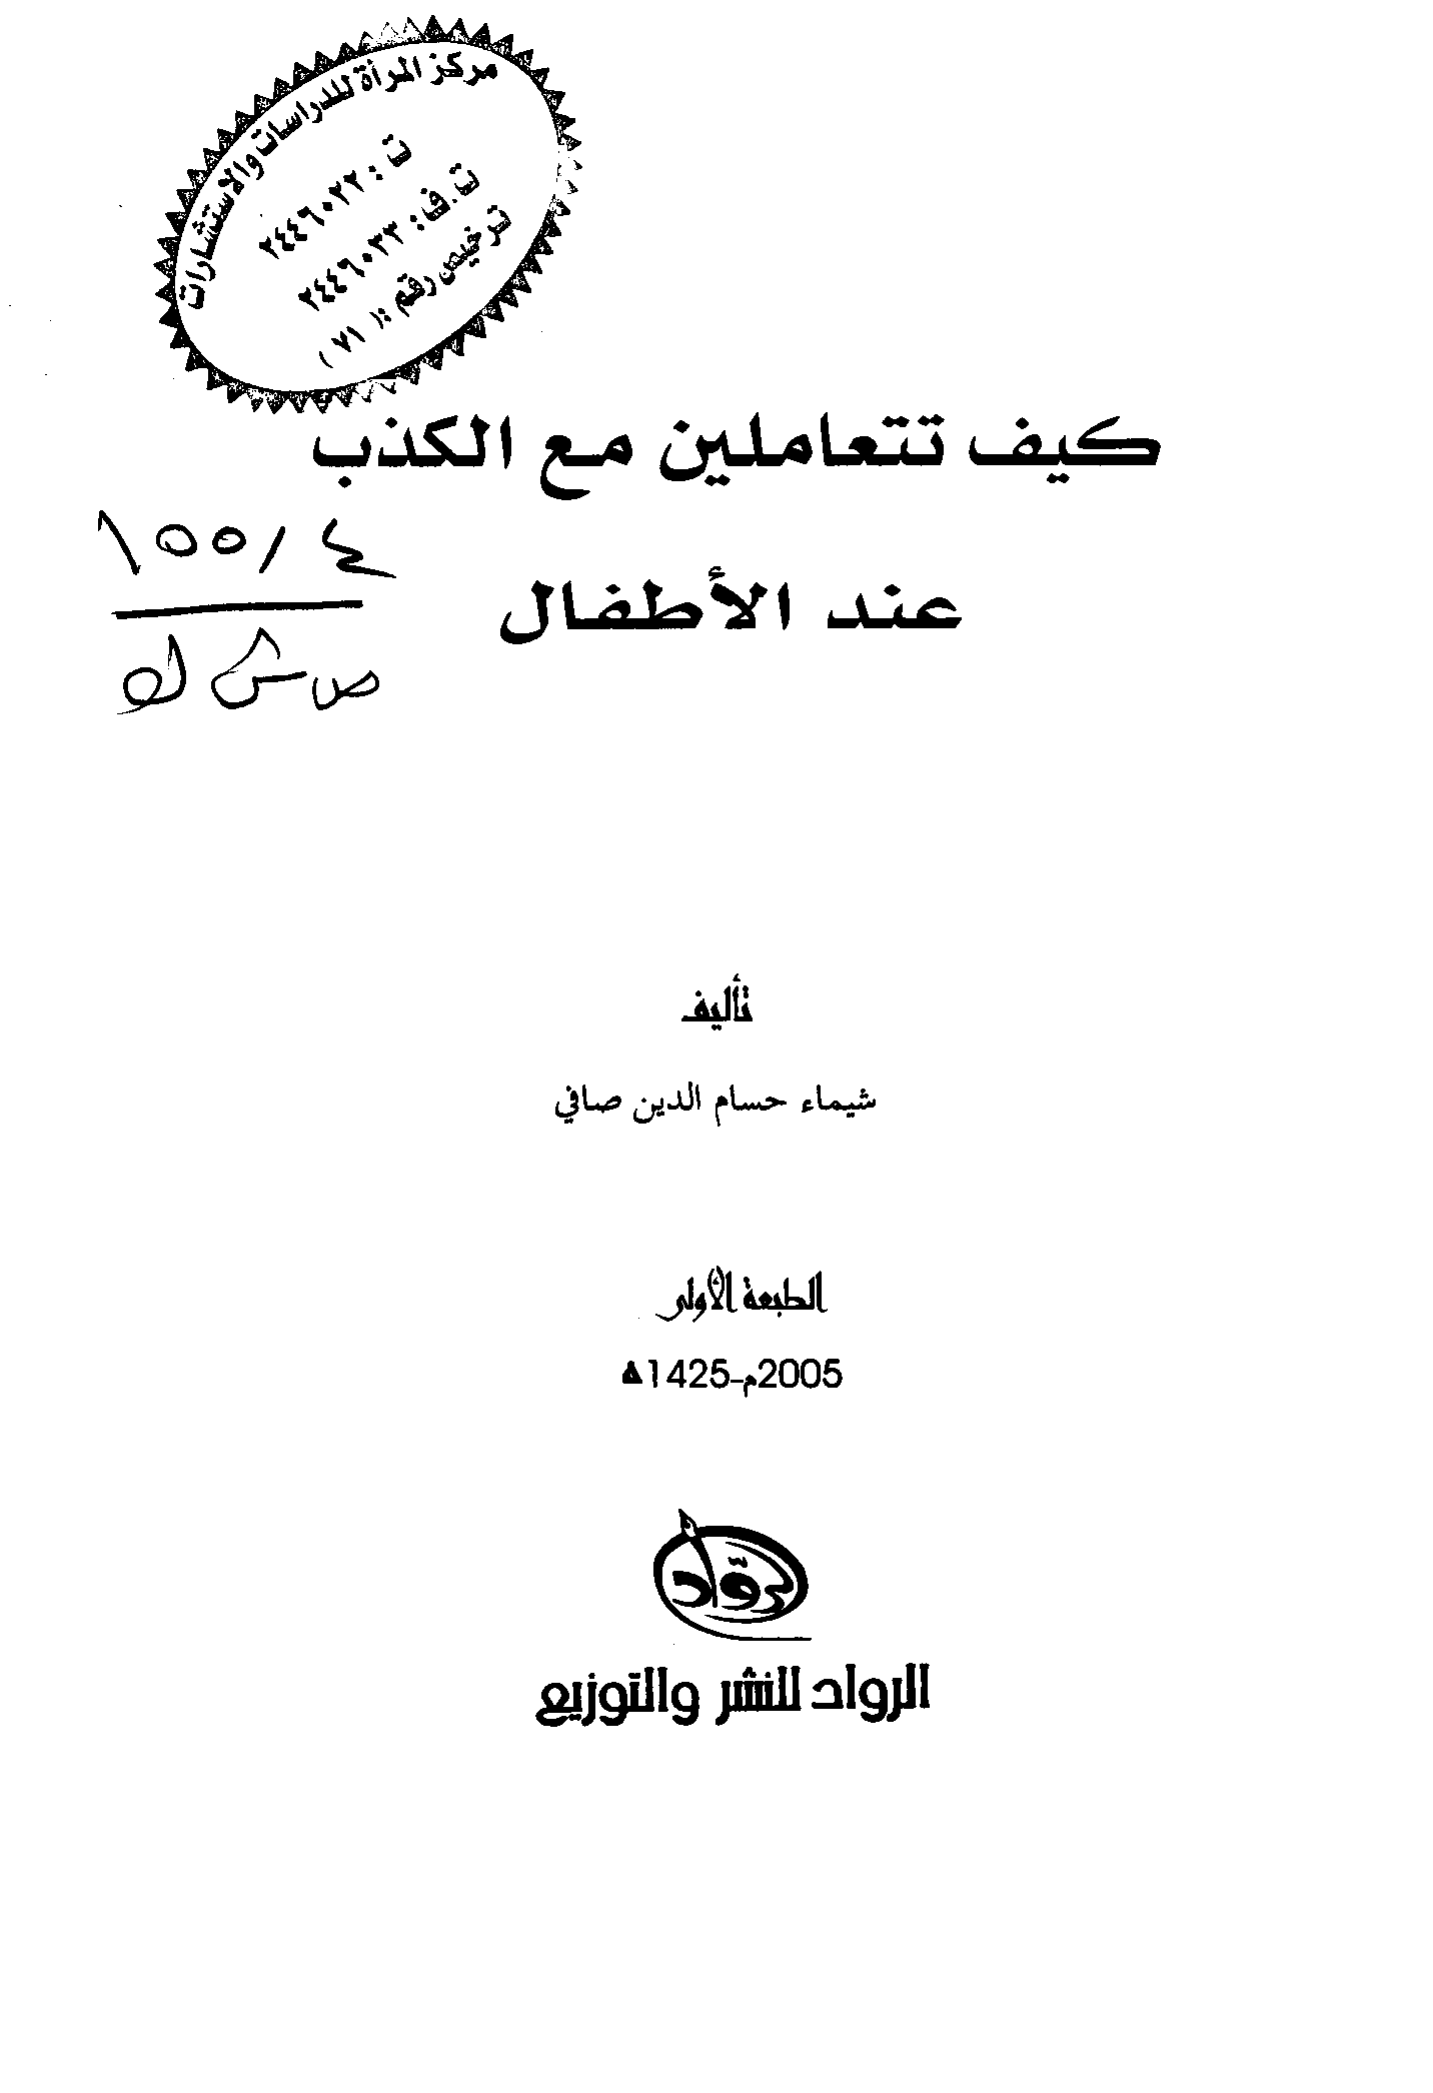 مركز المرأة للدراسات والاستشارات
ت : ٢٤٤٦٠٢٢
ت.ف : ٢٤٤٦٠٣٣
ترخيص رقم :( ٧١ )
كيف تتعاملين مع الكذب
١٥٥/٤
عند الأطفال
ص ش ك
تأليف
شيماء حسام الدين صافي
الطبعة الأولى
2005م-1425ه
الرواد
الرواد للنشر والتوزيع